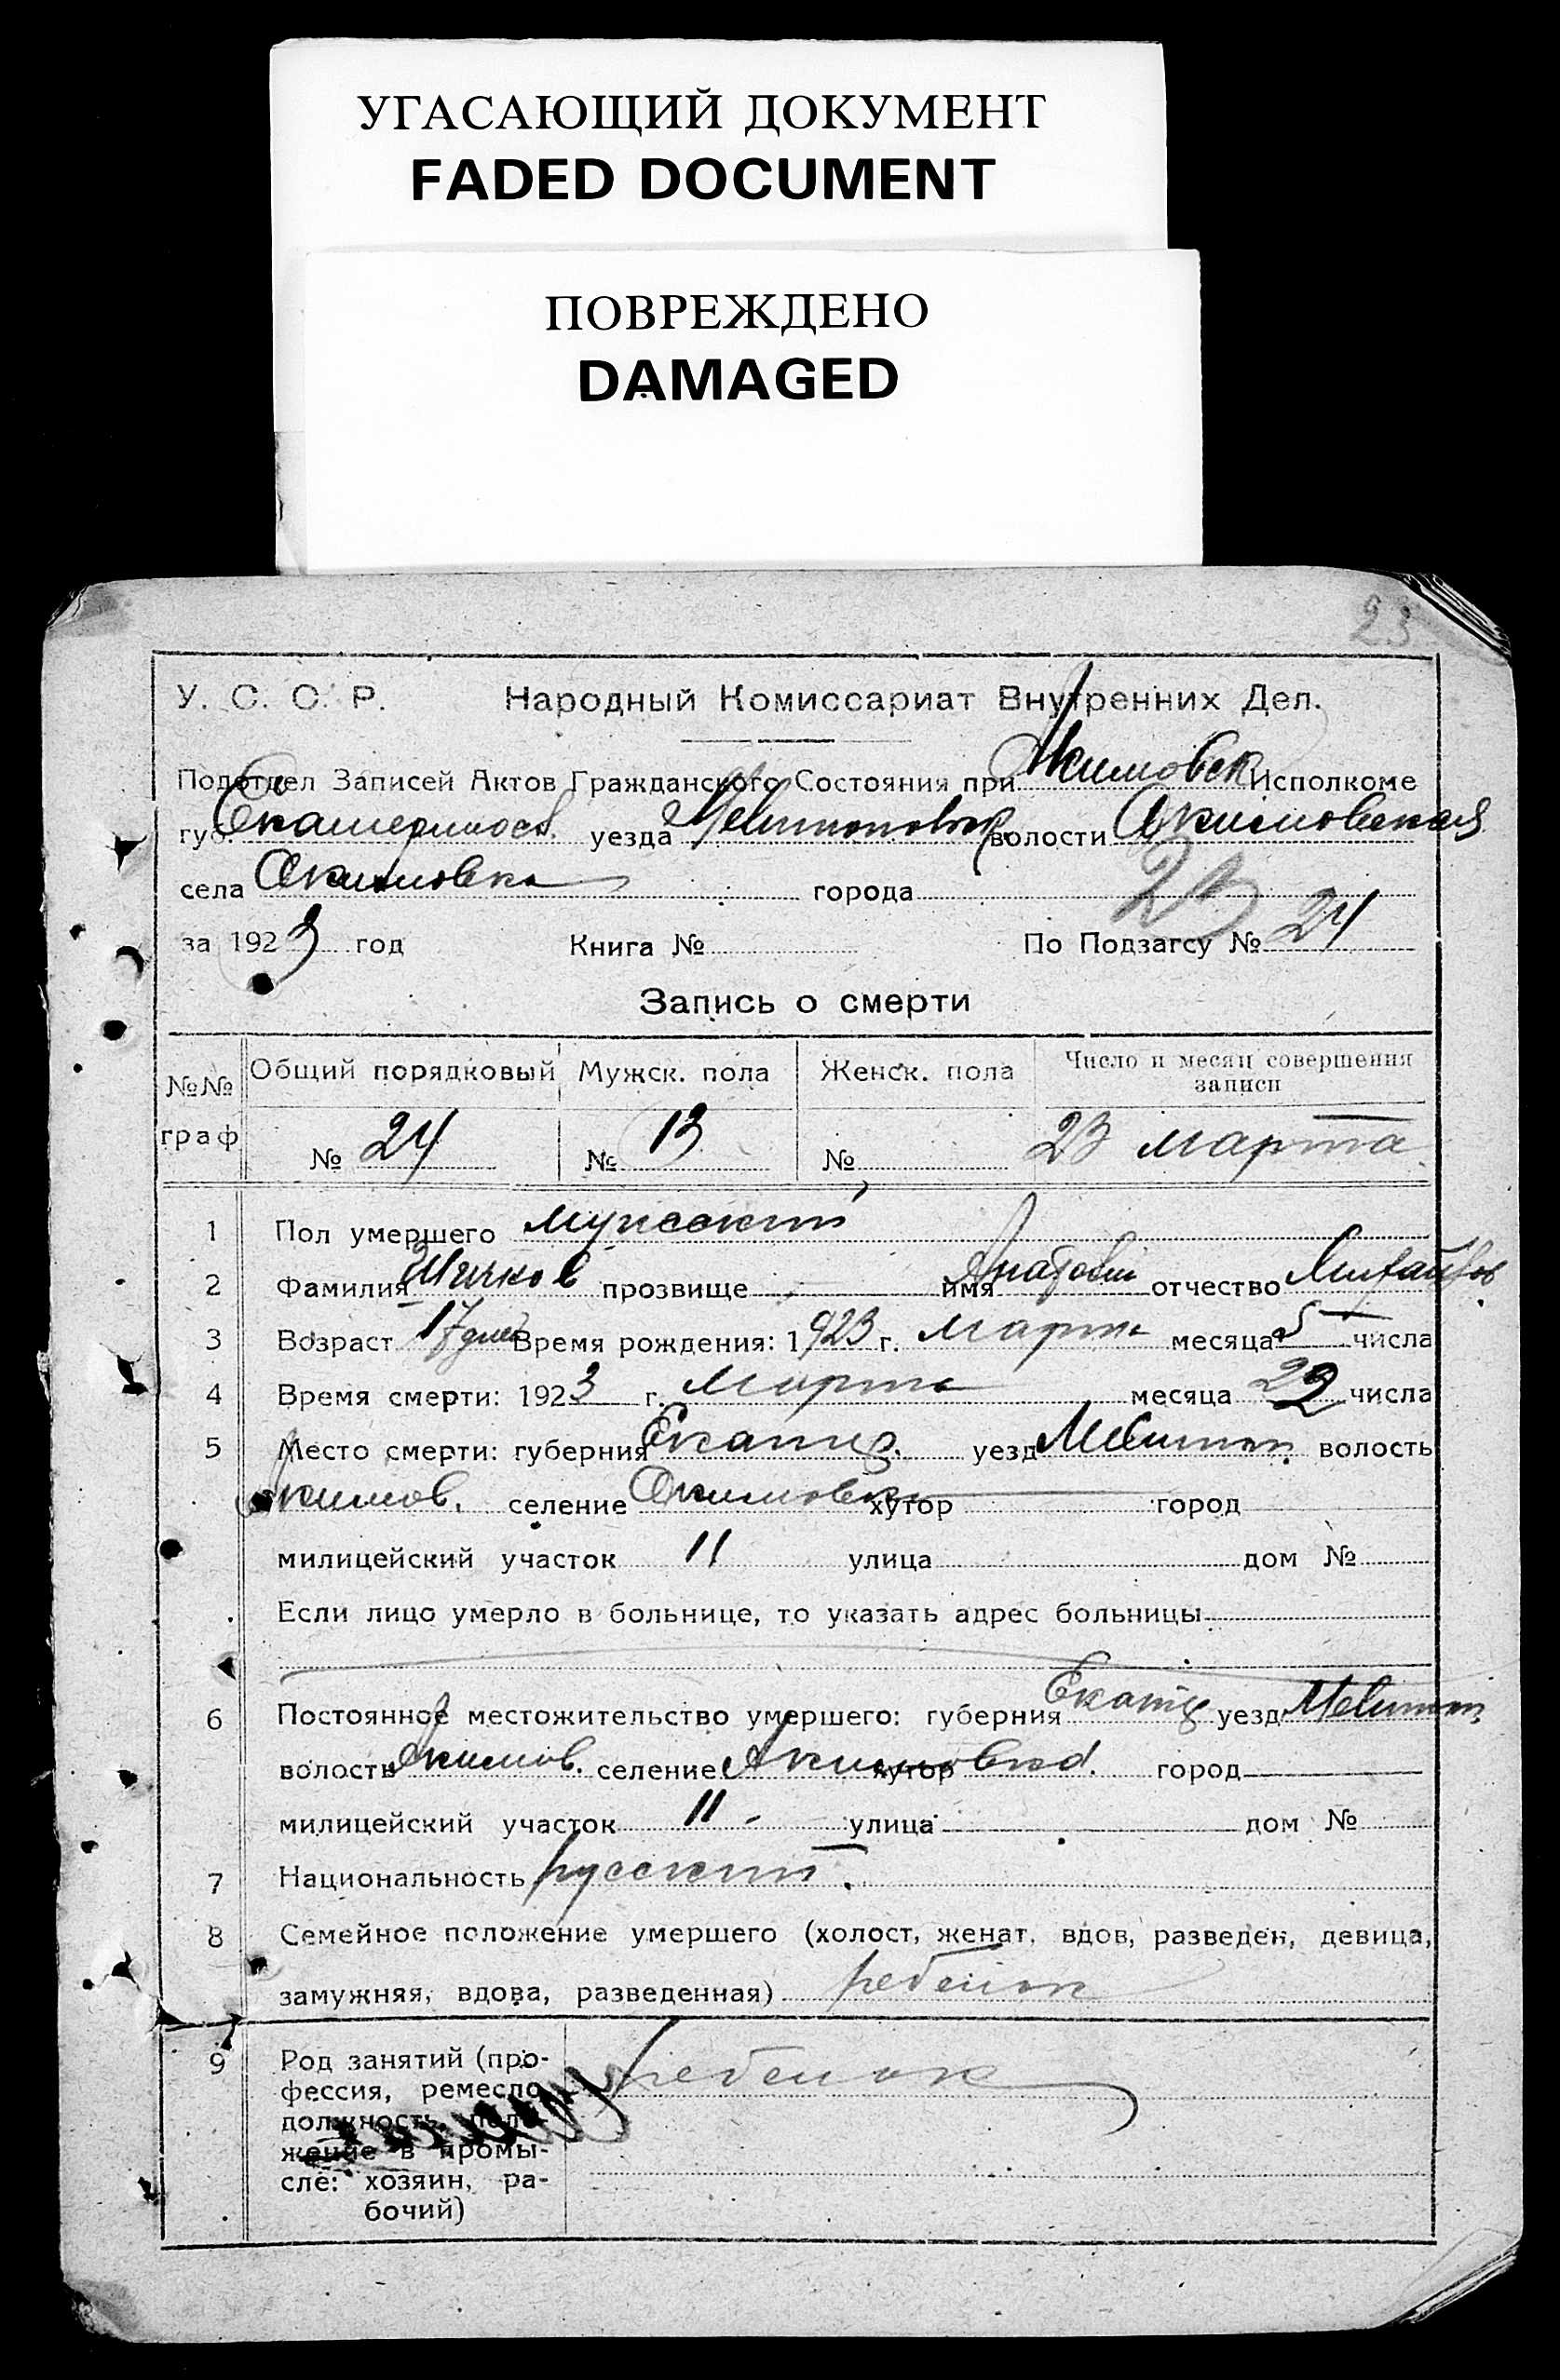 УГАСАЮЩИЙ ДОКУМЕНТ
FADED DOCUMENT
ПОВРЕЖДЕНО
DAMAGED
23
У. С. С. Р. Народный Комиссариат Внутренних Дел.
Подотдел Записей Актов Гражданского Состояния при Акимовск Исполкоме
губ. Екатериносл. уезда Мелитопольск волости Акимовская
села Акимовка города
23
за 1923 год Книга № По Подзагсу № 24
Запись о смерти
№№ граф Общий порядковый Мужск. пола Женск. пола Число и месяц совершения записи
№ 24 № 13 № 23 марта
1 Пол умершего мужский
2 Фамилия прозвище имя Анатолий отчество Михайлов
3 Возраст 17 дней Время рождения: 1923 г. марта месяца 5 числа
4 Время смерти: 1923 г. марта месяца 22 числа
5 Место смерти: губерния Екатер. уезд Мелитоп. волость
Акимов. селение Акимовка хутор город
милицейский участок 11 улица дом №
Если лицо умерло в больнице, то указать адрес больницы
6 Постоянное местожительство умершего: губерния Екатер уезд Мелитоп.
волость Акимов. селение Акимовка. хутор город
милицейский участок 11 улица дом №
7 Национальность русский.
8 Семейное положение умершего (холост, женат, вдов, разведен, девица,
замужняя, вдова, разведенная) ребенок
9 Род занятий (про- ребенок
фессия, ремесло
должность, поло-
жение в промы-
сле: хозяин, ра-
бочий)